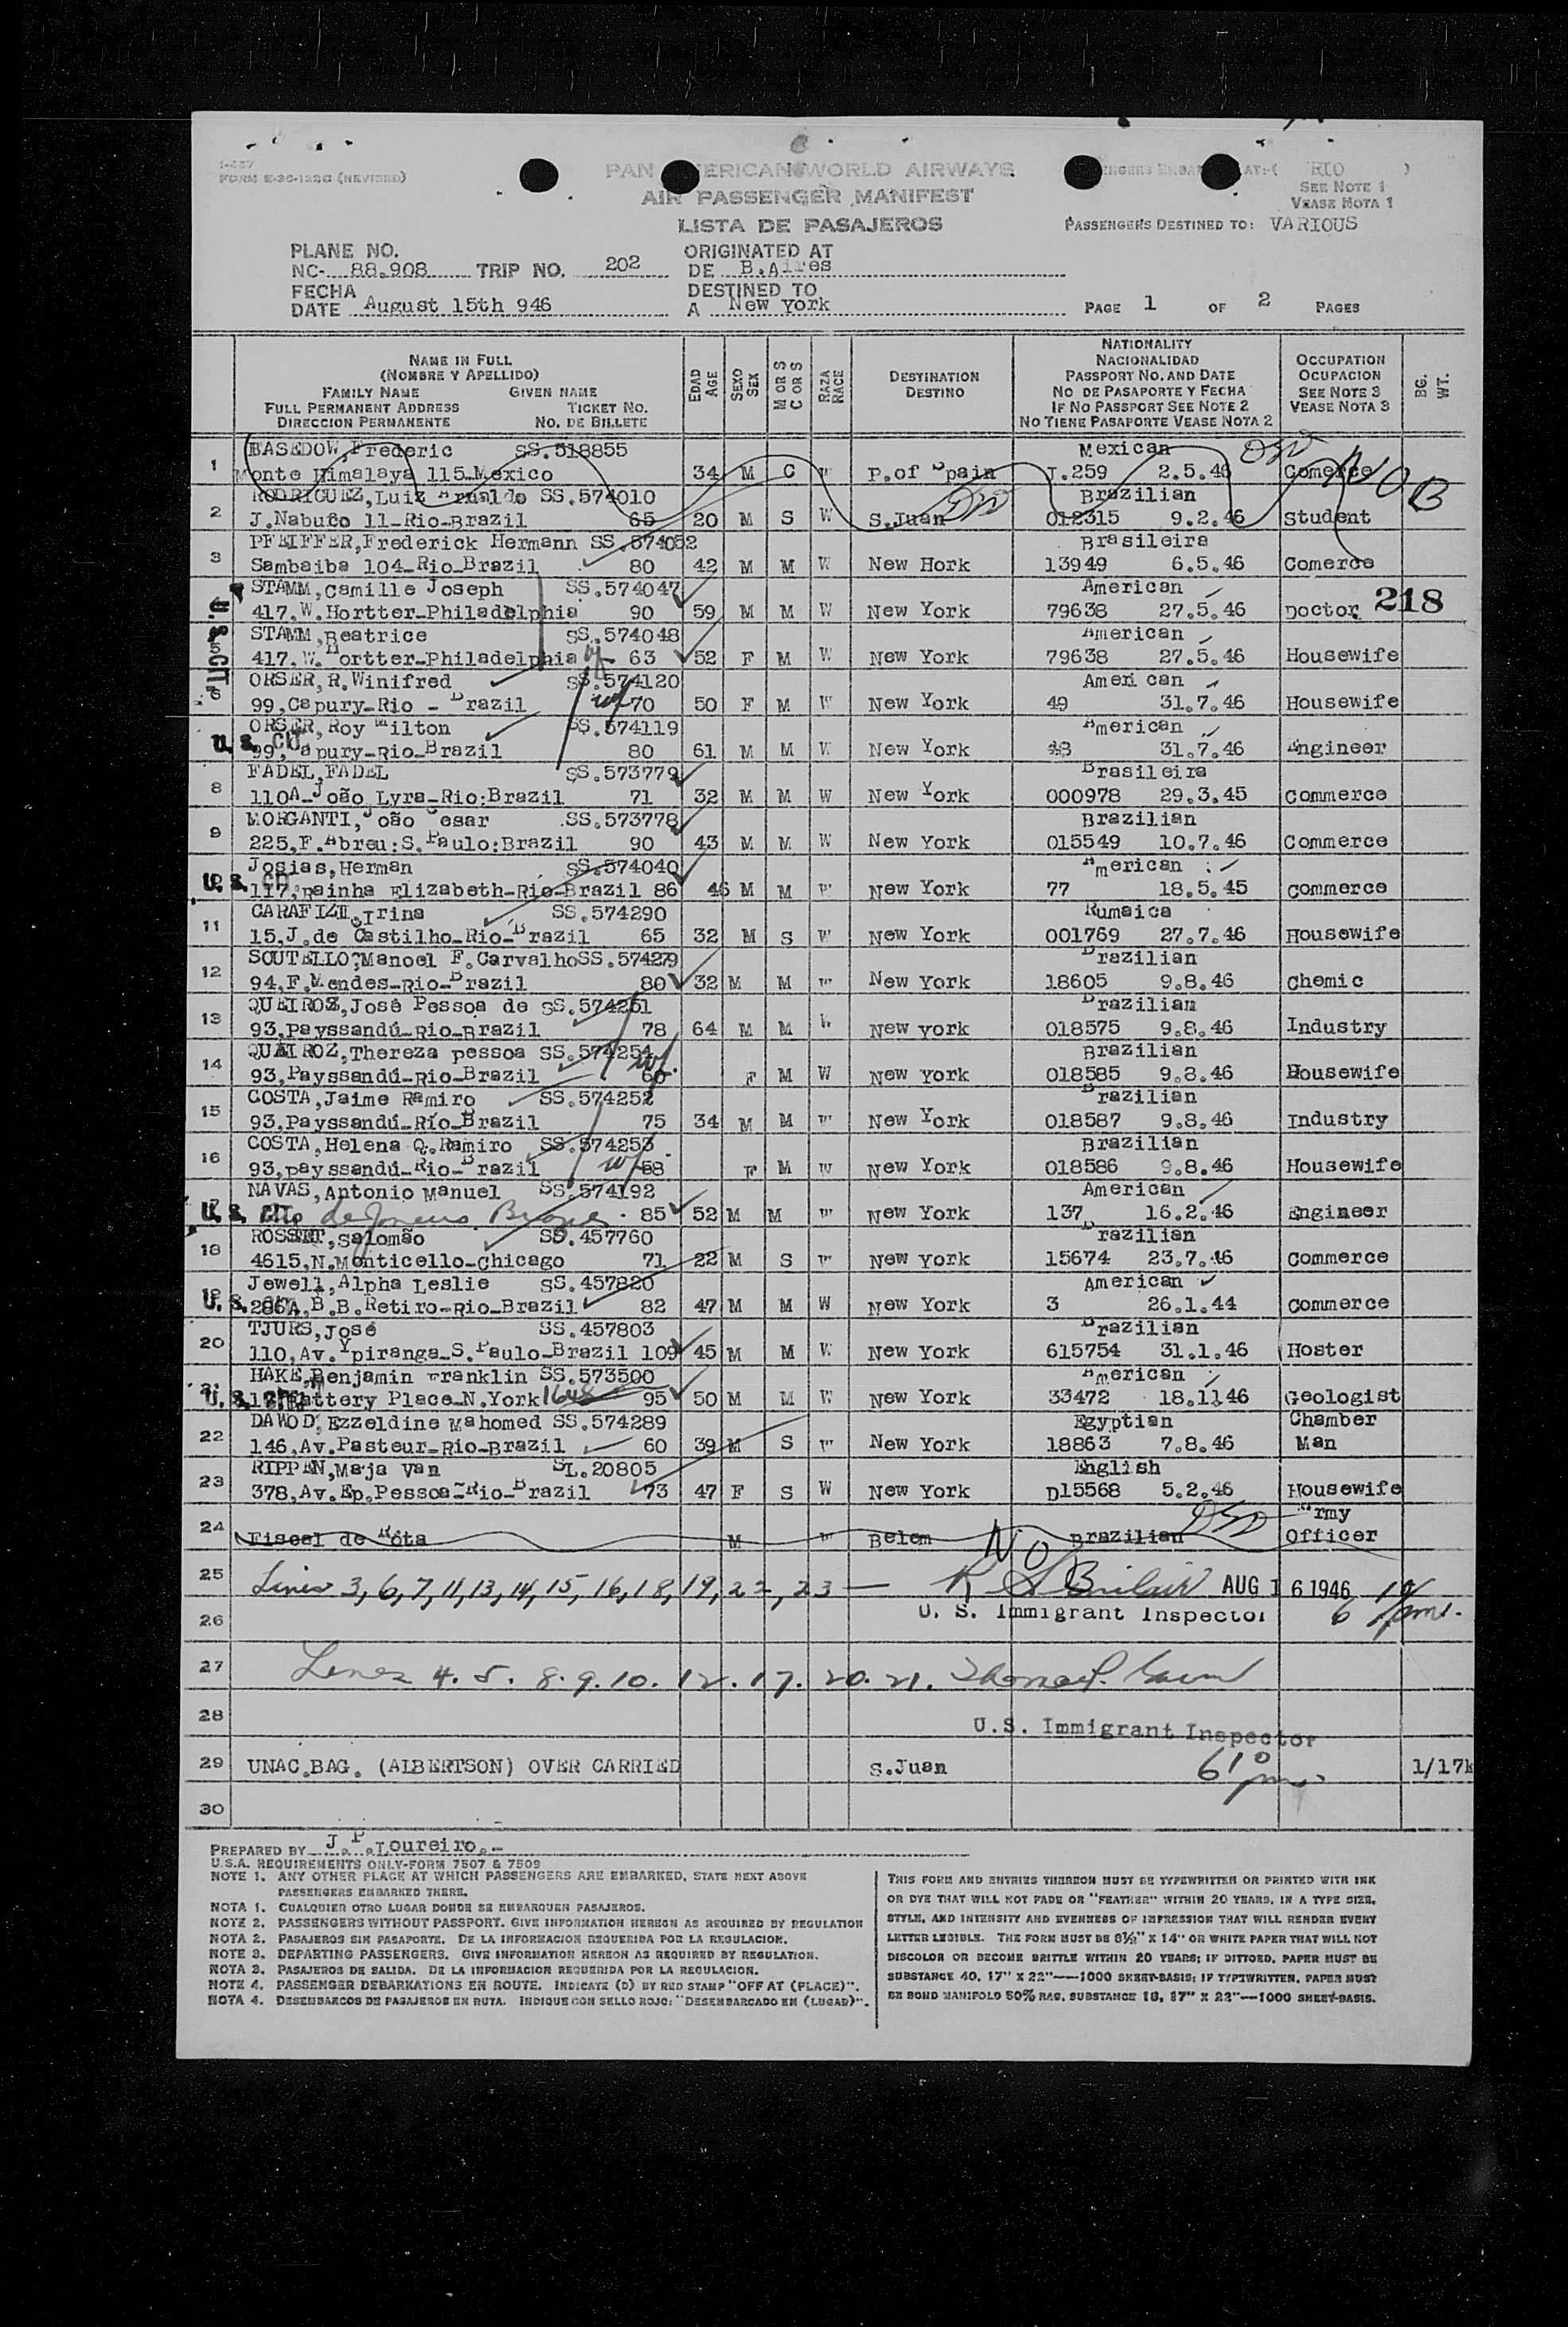 I-457
FORM E-30-122G (REVISED)
PAN AMERICAN WORLD AIRWAYS
AIR PASSENGER MANIFEST
LISTA DE PASAJEROS
AT:( RIO )
SEE NOTE 1
VEASE NOTA 1
PASSENGERS DESTINED TO: VARIOUS
PLANE NO.
NC- 88.908 TRIP NO. 202
ORIGINATED AT
DE B.Aires
FECHA
DATE August 15th 946
DESTINED TO
A New York
PAGE 1 OF 2 PAGES
NAME IN FULL
(NOMBRE Y APELLIDO)
FAMILY NAME GIVEN NAME
FULL PERMANENT ADDRESS TICKET NO.
DIRECCION PERMANENTE NO. DE BILLETE
EDAD AGE
SEXO SEX
M OR S C OR S
RAZA RACE
DESTINATION
DESTINO
NATIONALITY
NACIONALIDAD
PASSPORT NO. AND DATE
NO DE PASAPORTE Y FECHA
IF NO PASSPORT SEE NOTE 2
NO TIENE PASAPORTE VEASE NOTA 2
OCCUPATION
OCUPACION
SEE NOTE 3
VEASE NOTA 3
BG. WT.
BASEDOW,Frederic SS.518855 Mexican
1 Monte Himalaya 115-Mexico 34 M C W P.of Spain J.259 2.5.46 Comerce NOB
RODRIGUEZ,Luiz Arnaldo SS.574010 Brazilian
2 J.Nabuco 11-Rio-Brazil 65 20 M S W S.Juan 012315 9.2.46 Student
PFEIFFER,Frederick Hermann SS.574052 Brasileira
3 Sambaiba 104-Rio-Brazil 80 42 M M W New Hork 13949 6.5.46 Comerce
STAMM,Camille Joseph SS.574047 American
4 417.W.Hortter-Philadelphia 90 59 M M W New York 79638 27.5.46 Doctor 218
STAMM,Beatrice SS.574048 American
5 417.W.Hortter-Philadelphia 63 52 F M W New York 79638 27.5.46 Housewife
U. S. CIT
ORSER,R.Winifred SS.574120 American
6 99,Capury-Rio - Brazil 70 50 F M W New York 49 31.7.46 Housewife
ORSER,Roy Milton SS.574119 American
U. S. CIT 99,Capury-Rio-Brazil 80 61 M M W New York 48 31.7.46 Engineer
FADEL,FADEL SS.573779 Brasileira
8 110A-João Lyra-Rio:Brazil 71 32 M M W New York 000978 29.3.45 Commerce
MORGANTI,João Cesar SS.573778 Brazilian
9 225,F.Abreu:S.Paulo:Brazil 90 43 M M W New York 015549 10.7.46 Commerce
Josias,Herman SS.574040 American
U. S. CIT 117,Rainha Elizabeth-Rio-Brazil 86 46 M M W New York 77 18.5.45 Commerce
Irina SS.574290 Rumaica
11 15,J.de Castilho-Rio-Brazil 65 32 M S W New York 001769 27.7.46 Housewife
SOUTELLO,Manoel F.Carvalho SS.574279 Brazilian
12 94,F.Mendes-Rio-Brazil 80 32 M M W New York 18605 9.8.46 Chemic
QUEIROZ,José Pessoa de SS.574251 Brazilian
13 93,Payssandú-Rio-Brazil 78 64 M M W New york 018575 9.8.46 Industry
QUEIROZ,Thereza pessoa SS.574254 Brazilian
14 93,Payssandú-Rio-Brazil 60 F M W New York 018585 9.8.46 Housewife
COSTA,Jaime Ramiro SS.574252 Brazilian
15 93,Payssandú-Río-Brazil 75 34 M M W New York 018587 9.8.46 Industry
COSTA,Helena Q.Ramiro SS.574253 Brazilian
16 93,payssandú-Rio-Brazil 58 F M W New York 018586 9.8.46 Housewife
NAVAS,Antonio Manuel SS.574192 American
U. S. CIT Rio de Janeiro Brazil 85 52 M M W New York 137 16.2.46 Engineer
Salomão SS.457760 Brazilian
18 4615,N.Monticello-Chicago 71 22 M S W New York 15674 23.7.46 Commerce
Jewell,Alpha Leslie SS.457820 American
U. S. 286A.B.B.Retiro-Rio-Brazil 82 47 M M W New York 3 26.1.44 Commerce
TJURS,José SS.457803 Brazilian
20 110,Av.Ypiranga-S.Paulo-Brazil 109 45 M M W New York 615754 31.1.46 Hoster
HAKE,Benjamin Franklin SS.573500 American
U. S. CIT Battery Place-N.York 1648 95 50 M M W New York 33472 18.1146 Geologist
DAWOD,Ezzeldine Mahomed SS.574289 Egyptian Chamber
22 146,Av.Pasteur-Rio-Brazil 60 39 M S W New York 18863 7.8.46 Man
RIPPEN,Maja Van SL.20805 English
23 378,Av.Ep.Pessoa-Rio-Brazil 73 47 F S W New York D15568 5.2.46 Housewife
Army
24 Fiscal de Rota M W Belem Brazilian Officer
NOB
25 Lines 3, 6, 7, 11, 13, 14, 15, 16, 18, 19, 22, 23 — AUG 16 1946
26 U. S. Immigrant Inspector 6 10 pm.
27 Lines 4. 5. 8. 9. 10. 12. 17. 20. 21.
28 U.S. Immigrant Inspector
29 UNAC.BAG. (ALBERTSON) OVER CARRIED S.Juan 6 10 pm. 1/17k
30
PREPARED BY J.P.Loureiro.-
U.S.A. REQUIREMENTS ONLY-FORM 7507 & 7509
NOTE 1. ANY OTHER PLACE AT WHICH PASSENGERS ARE EMBARKED, STATE NEXT ABOVE
PASSENGERS EMBARKED THERE.
NOTA 1. CUALQUIER OTRO LUGAR DONDE SE EMBARQUEN PASAJEROS.
NOTE 2. PASSENGERS WITHOUT PASSPORT. GIVE INFORMATION HEREON AS REQUIRED BY REGULATION
NOTA 2. PASAJEROS SIN PASAPORTE. DE LA INFORMACION REQUERIDA POR LA REGULACION.
NOTE 3. DEPARTING PASSENGERS. GIVE INFORMATION HEREON AS REQUIRED BY REGULATION.
NOTA 3. PASAJEROS DE SALIDA. DE LA INFORMACION REQUERIDA POR LA REGULACION.
NOTE 4. PASSENGER DEBARKATIONS EN ROUTE. INDICATE (D) BY RED STAMP "OFF AT (PLACE)".
NOTA 4. DESEMBARCOS DE PASAJEROS EN RUTA. INDIQUE CON SELLO ROJO: "DESEMBARCADO EN (LUGAR)".
THIS FORM AND ENTRIES THEREON MUST BE TYPEWRITTEN OR PRINTED WITH INK
OR DYE THAT WILL NOT FADE OR "FEATHER" WITHIN 20 YEARS, IN A TYPE SIZE,
STYLE, AND INTENSITY AND EVENNESS OF IMPRESSION THAT WILL RENDER EVERY
LETTER LEGIBLE. THE FORM MUST BE 8½" X 14" OR WHITE PAPER THAT WILL NOT
DISCOLOR OR BECOME BRITTLE WITHIN 20 YEARS; IF DITTOED, PAPER MUST BE
SUBSTANCE 40, 17" X 22"—1000 SHEET-BASIS; IF TYPEWRITTEN, PAPER MUST
BE BOND MANIFOLD 50% RAG, SUBSTANCE 18, 17" X 22"—1000 SHEET-BASIS.